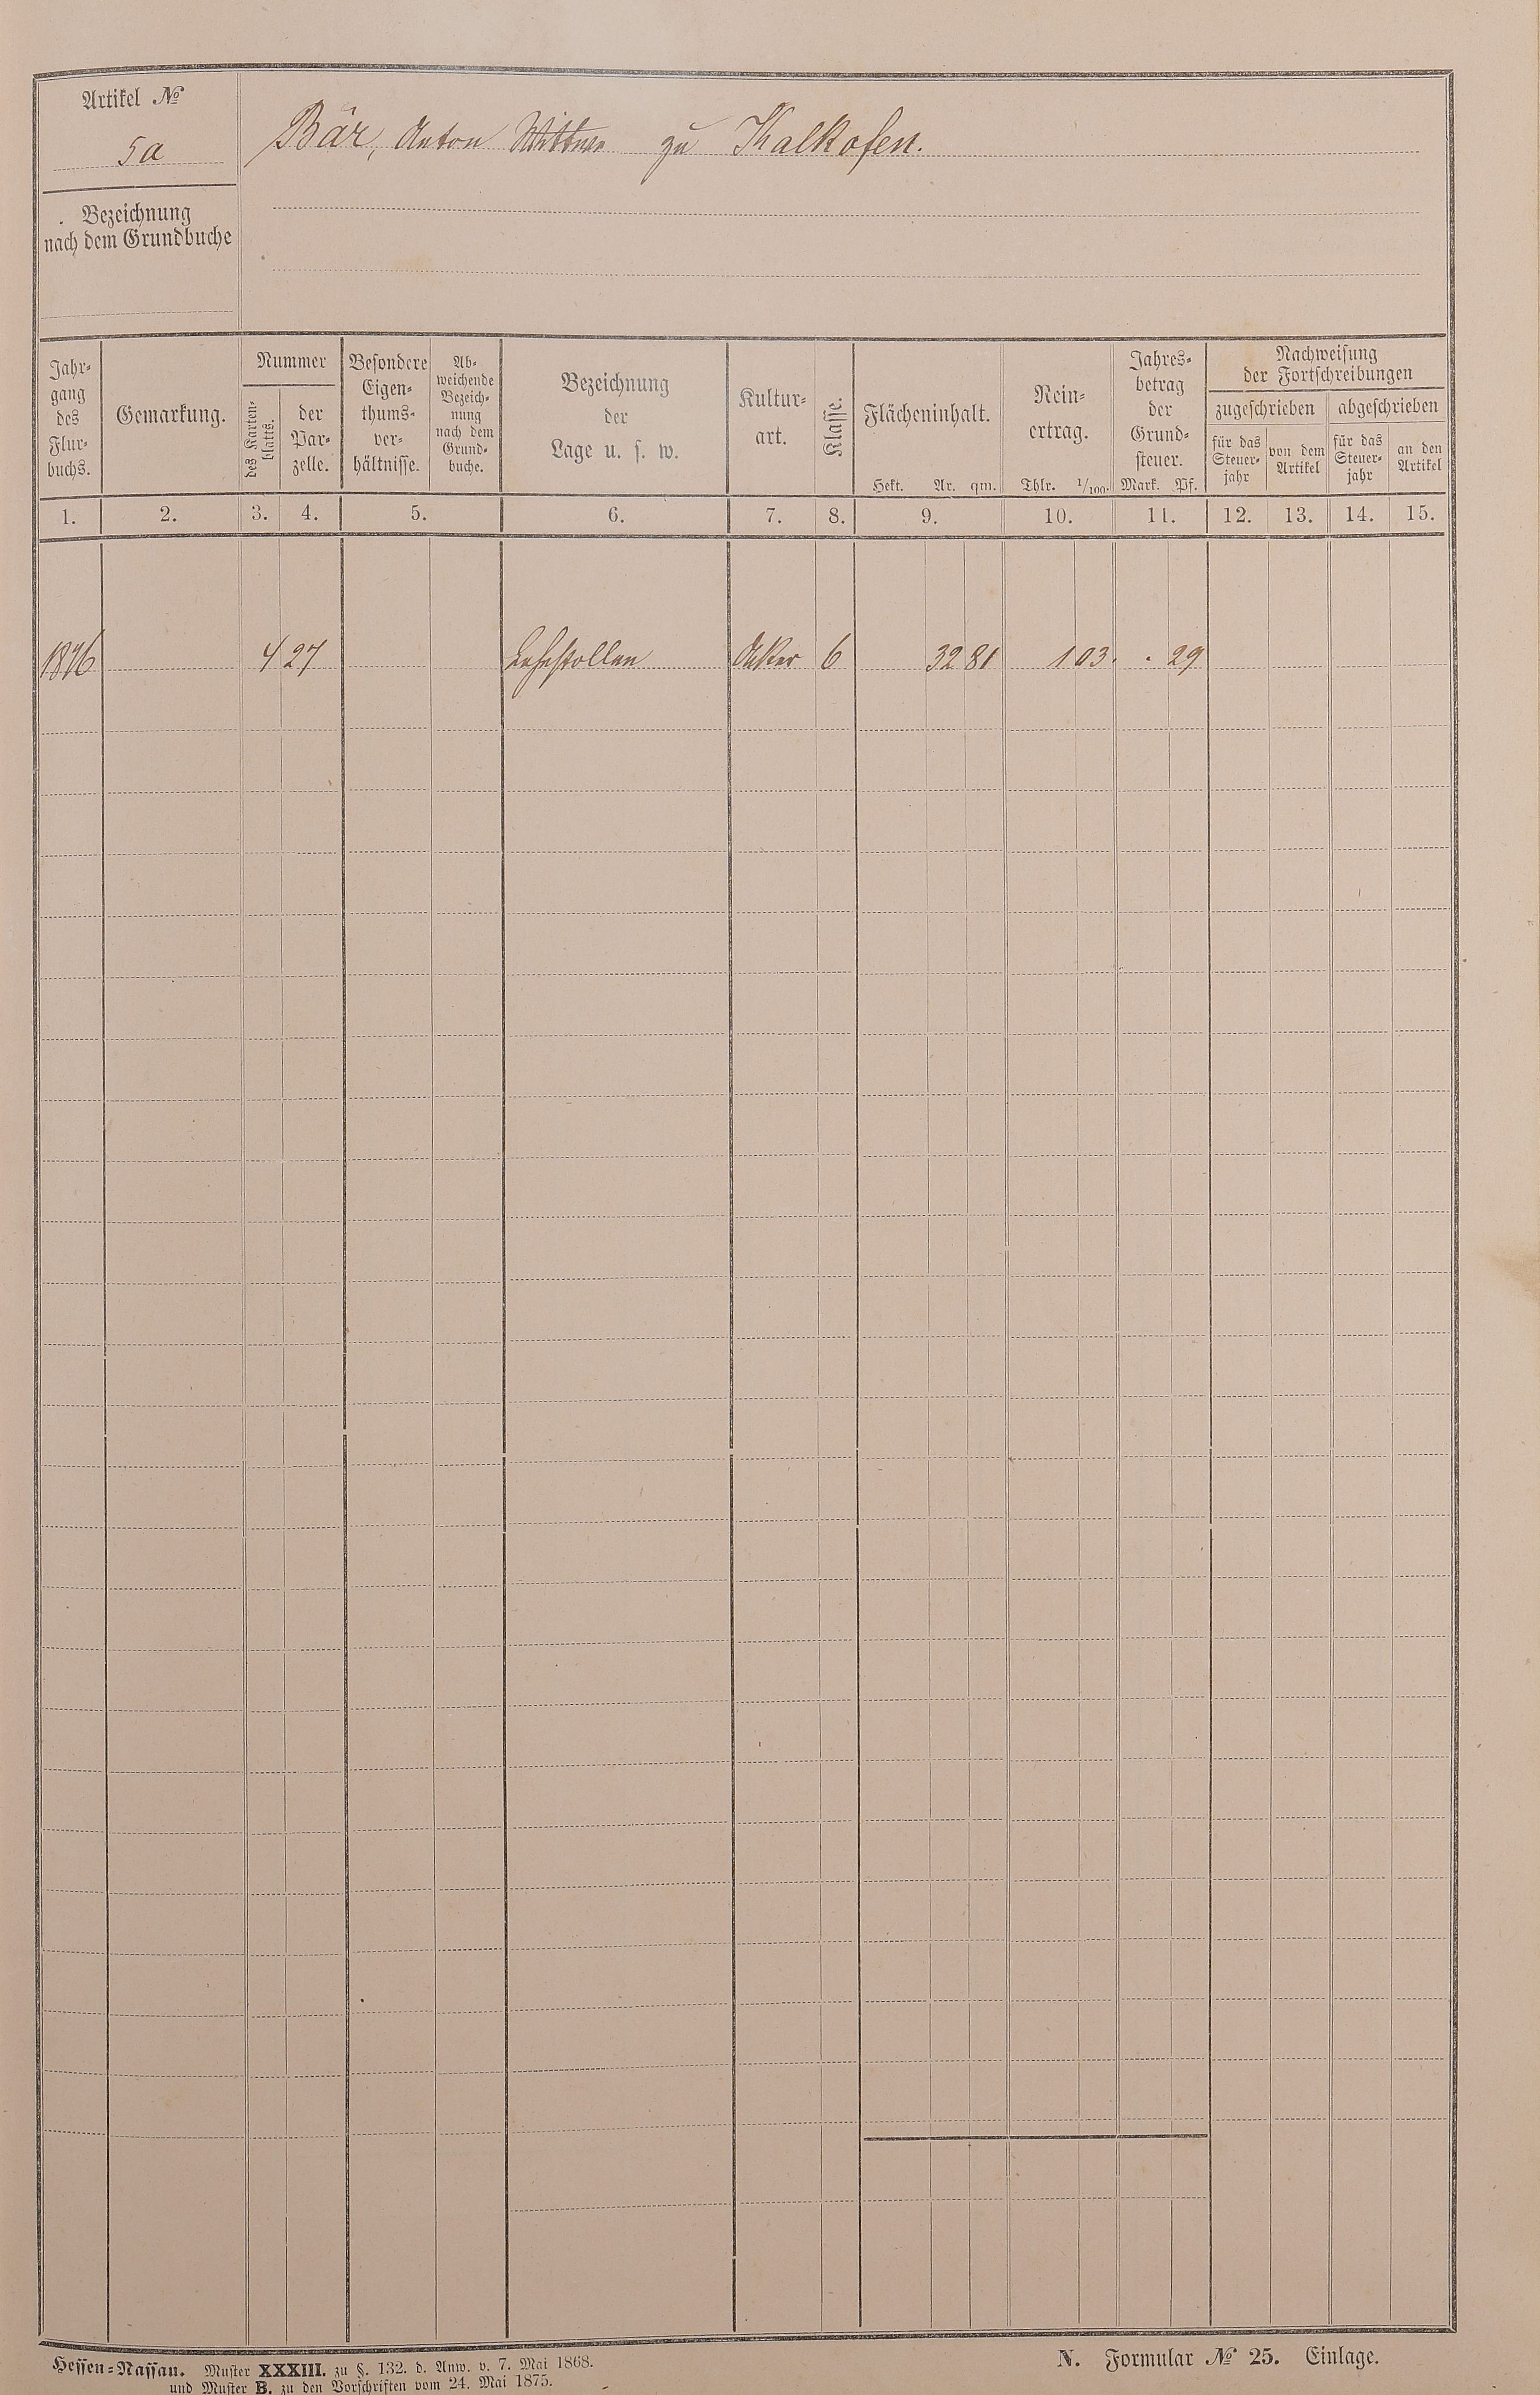 Artikel №
5a
Bär, Anton Wittwe zu Kalkofen.
Bezeichnung
nach dem Grundbuche
Jahr-
gang
des
Flur-
buchs.
Gemarkung.
Nummer
des Karten-
blatts.
der
Par-
zelle.
Besondere
Eigen-
thums-
ver-
hältnisse.
Ab-
weichende
Bezeich-
nung
nach dem
Grund-
buche.
Bezeichnung
der
Lage u. s. w.
Kultur-
art.
Klasse.
Flächeninhalt.
Hekt. Ar. qm.
Rein-
ertrag.
Thlr. 1/100.
Jahres-
betrag
der
Grund-
steuer.
Mark. Pf.
Nachweisung
der Fortschreibungen
zugeschrieben
abgeschrieben
für das
Steuer-
jahr
von dem
Artikel
für das
Steuer-
jahr
an den
Artikel
1. 2. 3. 4. 5. 6. 7. 8. 9. 10. 11. 12. 13. 14. 15.
1876 4 27 Acker 6 32 81 1 03 . 29
Hessen-Nassau. Muster XXXIII. zu §. 132. d. Anw. v. 7. Mai 1868.
und Muster B. zu den Vorschriften vom 24. Mai 1875.
N. Formular № 25. Einlage.